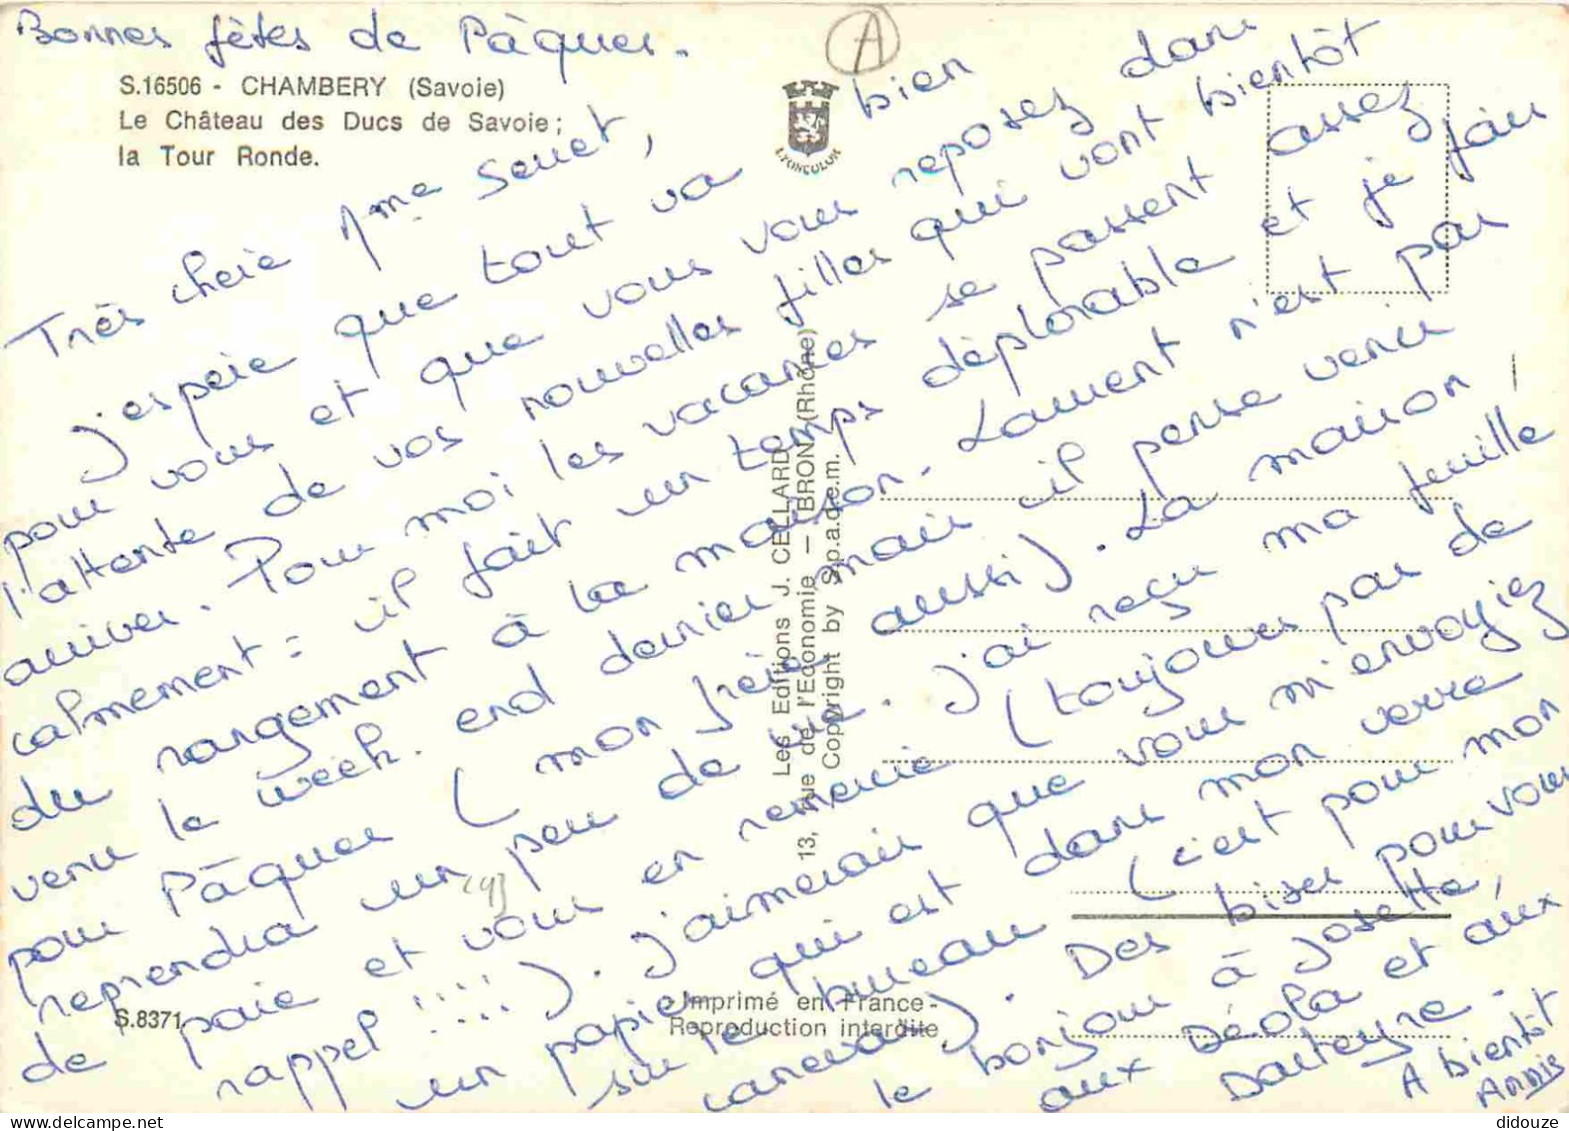 Bonnes fêtes de Pâques.
A
S.16506 - CHAMBERY (Savoie)
Le Château des Ducs de Savoie;
la Tour Ronde.
LYONCOLOR
Très chère Mme Senet,
J'espère que tout va bien
pour vous et que vous vous reposez dans
l'attente de vos nouvelles filles qui vont bientôt
arriver. Pour moi les vacances se passent assez
calmement : il fait un temps déplorable et je fais
du rangement à la maison. Laurent n'est pas
venu le week.end dernier mais il pense venir
pour Pâques (mon frère aussi). La maison
reprendra un peu de vie. J'ai reçu ma feuille
de paie et vous en remercie (toujours pas de
rappel !!!!!). J'aimerais que vous m'envoyiez
un papier qui est dans mon verre
sur le bureau (c'est pour mon
caneva). Des bises pour vous
le bonjour à Josette,
aux Déola et aux
Dauteyre.
A bientôt
Annie
Les Editions J. CELLARD
13, rue de l'Economie — BRON (Rhône)
Copyright by S.p.a.d.e.m.
S.8371
- Imprimé en France -
Reproduction interdite
delcampe.net
didouze